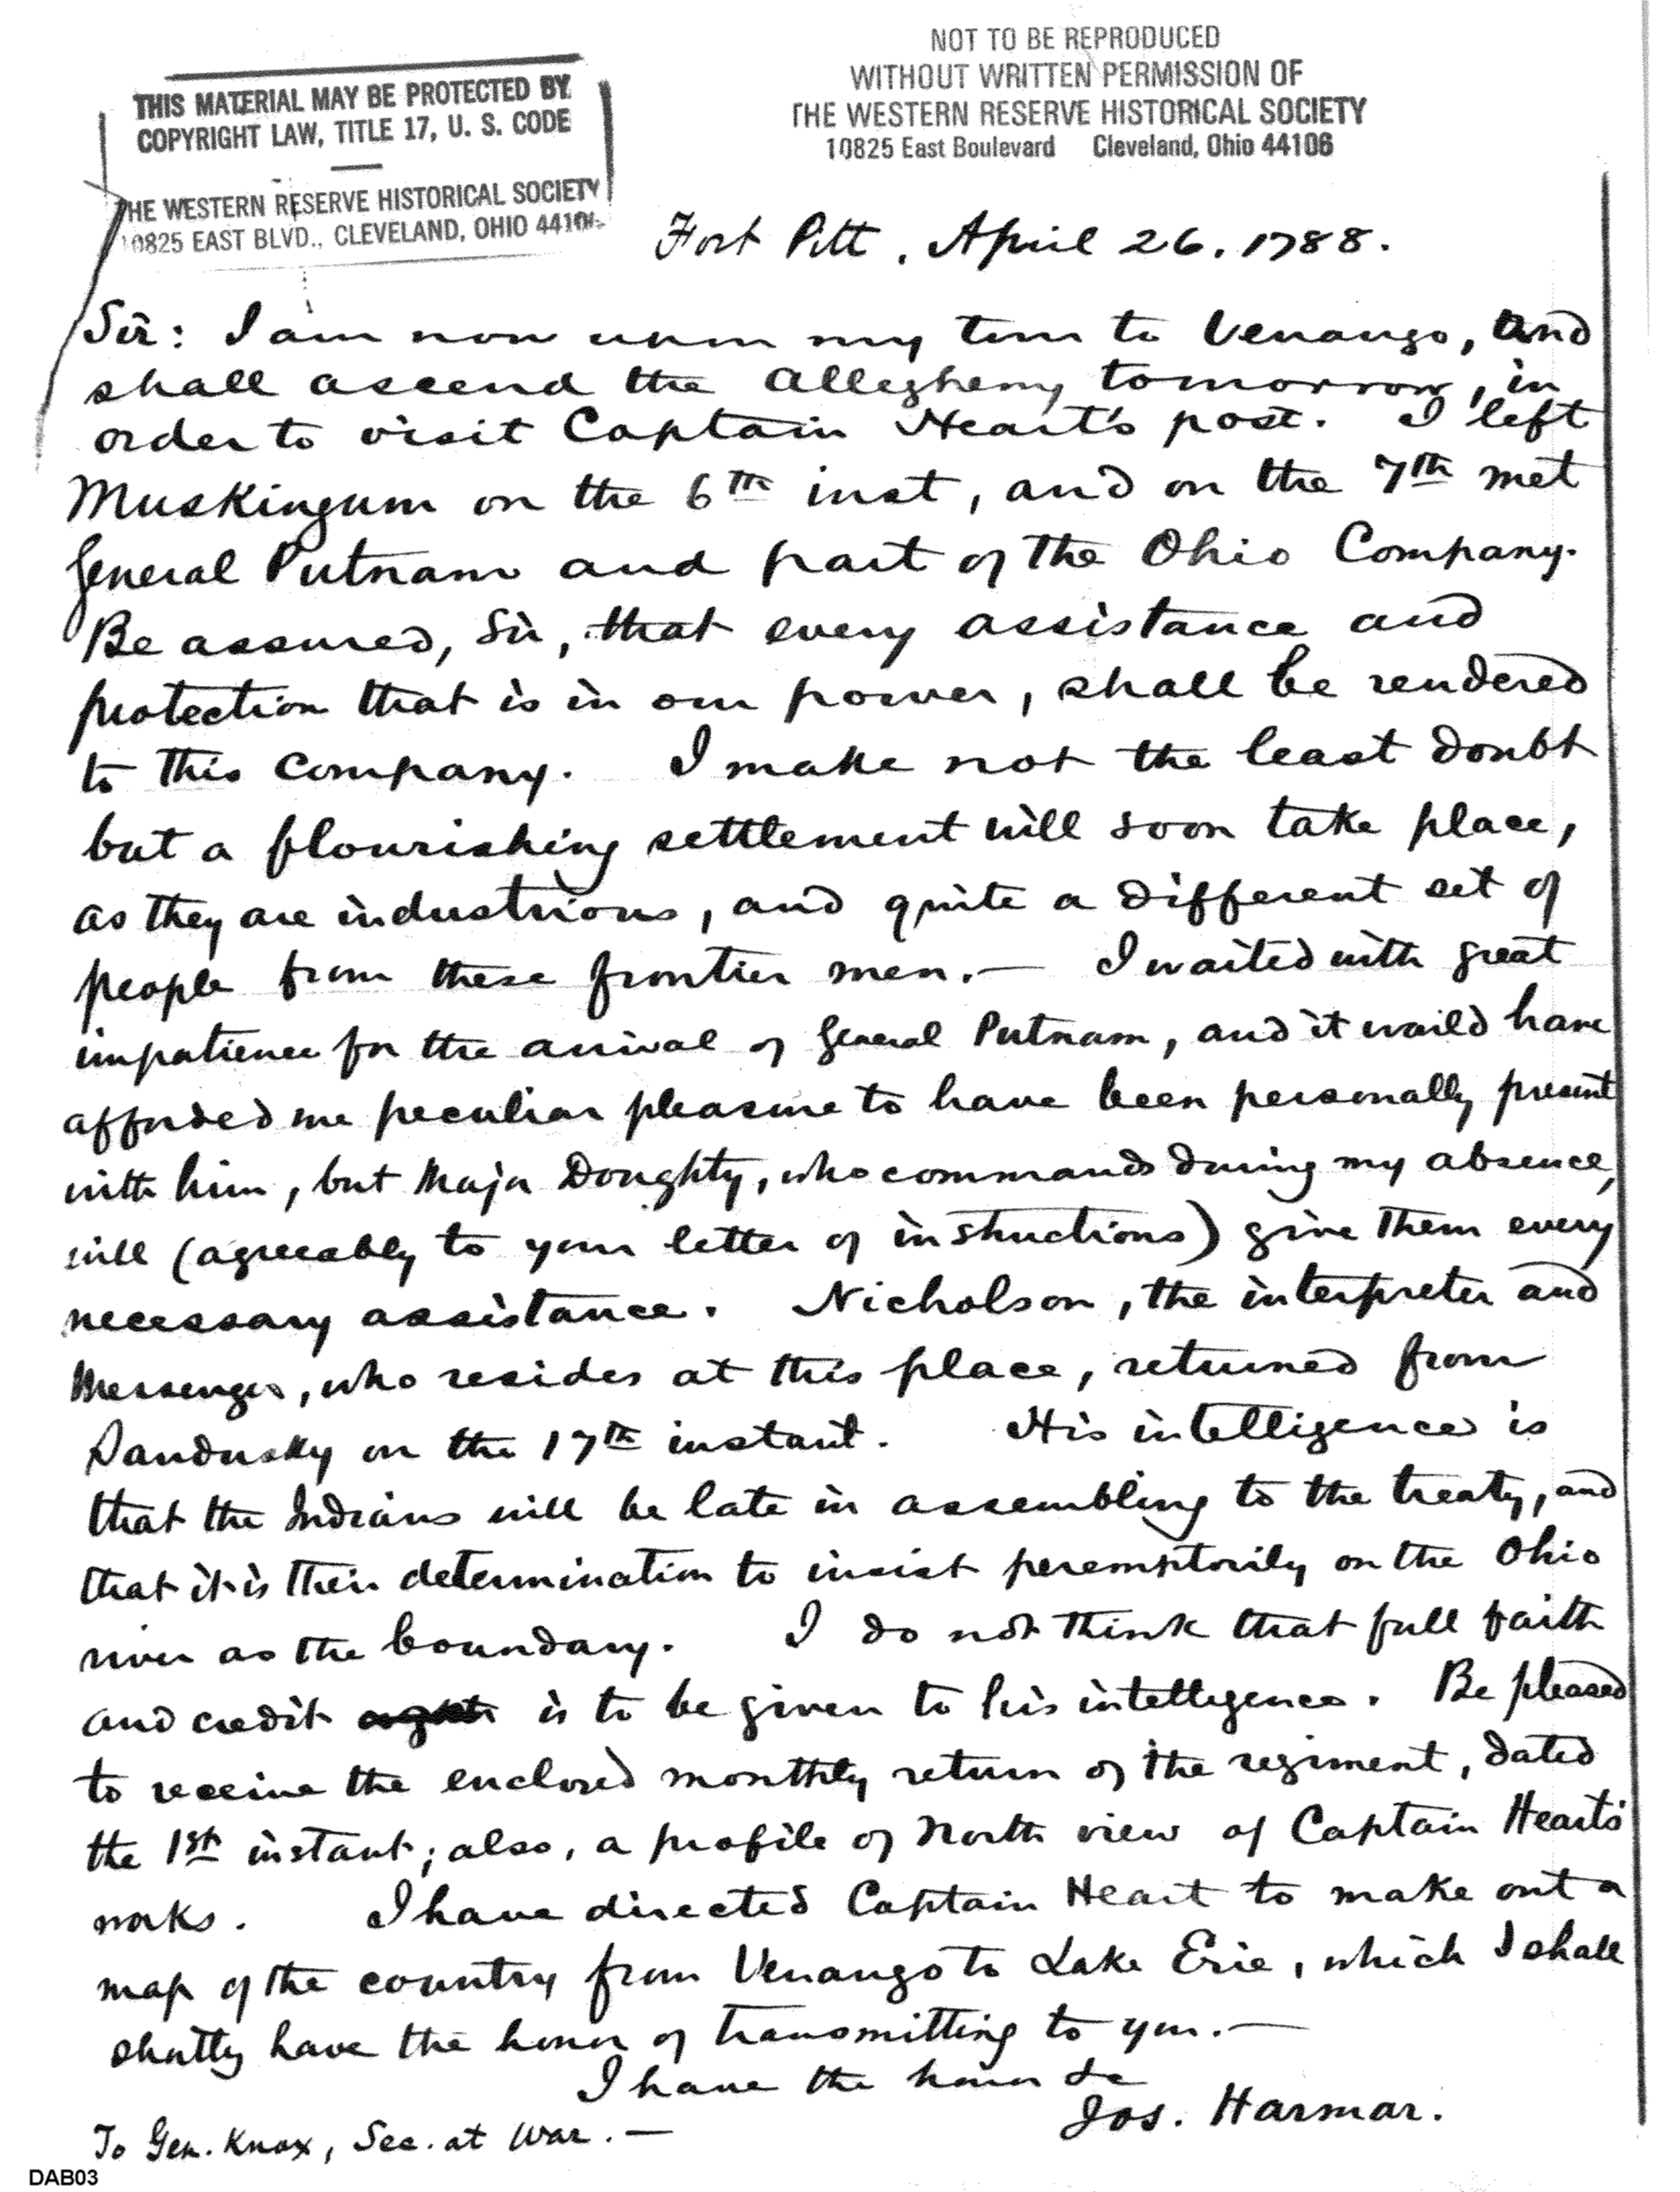 THIS MATERIAL MAY BE PROTECTED BY
COPYRIGHT LAW, TITLE 17, U. S. CODE
HE WESTERN RESERVE HISTORICAL SOCIETY
10825 EAST BLVD., CLEVELAND, OHIO 44106
NOT TO BE REPRODUCED
WITHOUT WRITTEN PERMISSION OF
THE WESTERN RESERVE HISTORICAL SOCIETY
10825 East Boulevard Cleveland, Ohio 44106
Fort Pitt, April 26, 1788.
Sir: I am now upon my tour to Venango, and
shall ascend the Allegheny tomorrow, in
order to visit Captain Heart's post. I left
Muskingum on the 6th inst, and on the 7th met
General Putnam and part of the Ohio Company.
Be assured, Sir, that every assistance and
protection that is in our power, shall be rendered
to this company. I make not the least doubt
but a flourishing settlement will soon take place,
as they are industrious, and quite a different set of
people from these frontier men.— I waited with great
impatience for the arrival of General Putnam, and it would have
afforded me peculiar pleasure to have been personally present
with him, but Major Doughty, who commands during my absence,
will (agreeably to your letter of instructions) give them every
necessary assistance. Nicholson, the interpreter and
Messenger, who resides at this place, returned from
Sandusky on the 17th instant. His intelligence is
that the Indians will be late in assembling to the treaty, and
that it is their determination to insist peremptorily on the Ohio
river as the boundary. I do not think that full faith
and credit is to be given to his intelligence. Be pleased
to receive the enclosed monthly return of the regiment, dated
the 1st instant; also, a profile of North view of Captain Heart's
works. I have directed Captain Heart to make out a
map of the country from Venango to Lake Erie, which I shall
shortly have the honor of transmitting to you.—
I have the honor &c
Jos. Harmar.
To Gen. Knox, Sec. at War.—
DAB03